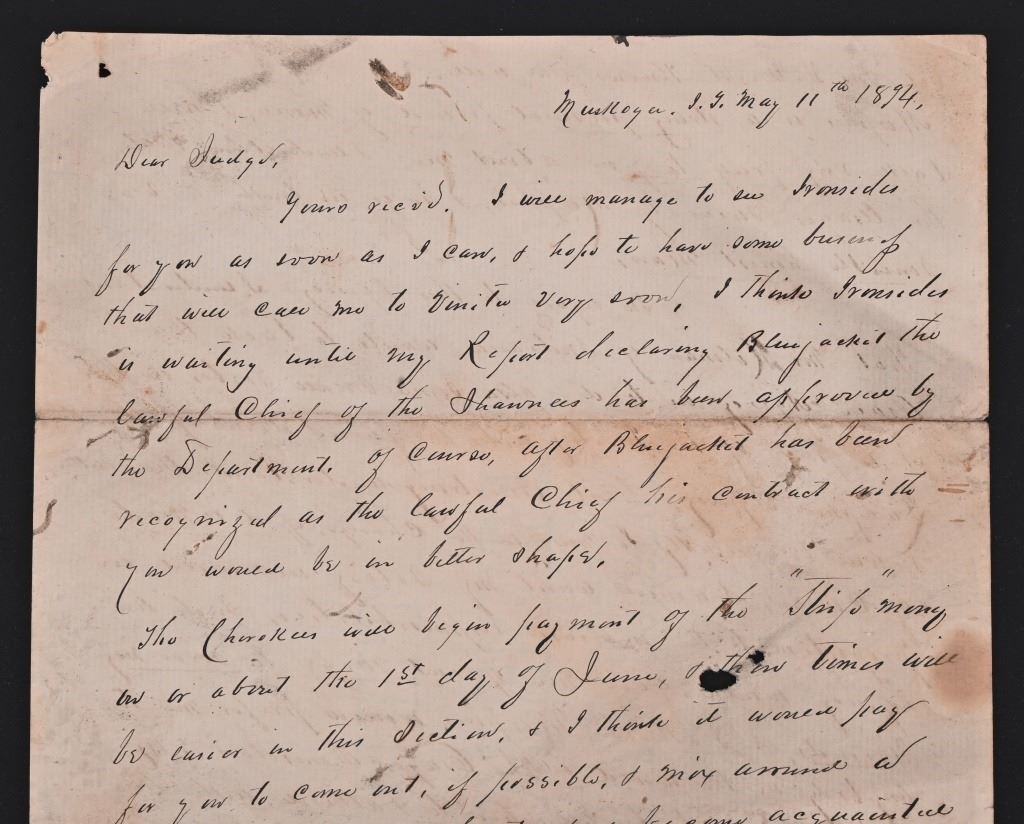 Muskogee. I.T. May 11th 1894.
Dear Judge,
Yours rec'd. I will manage to see Ironsides
for you as soon as I can, & hope to have some business
that will call me to Vinita very soon. I think Ironsides
is waiting until my Report declaring Bluejacket the
lawful Chief of the Shawnees has been approved by
the Department. Of course, after Bluejacket has been
recognized as the lawful Chief his contract with
you would be in better shape.
The Cherokees will begin payment of the "Strip" money
on or about the 1st day of June, & then times will
be easier in this Section, & I think it would pay
for you to come out, if possible, & mix around a
become acquainted